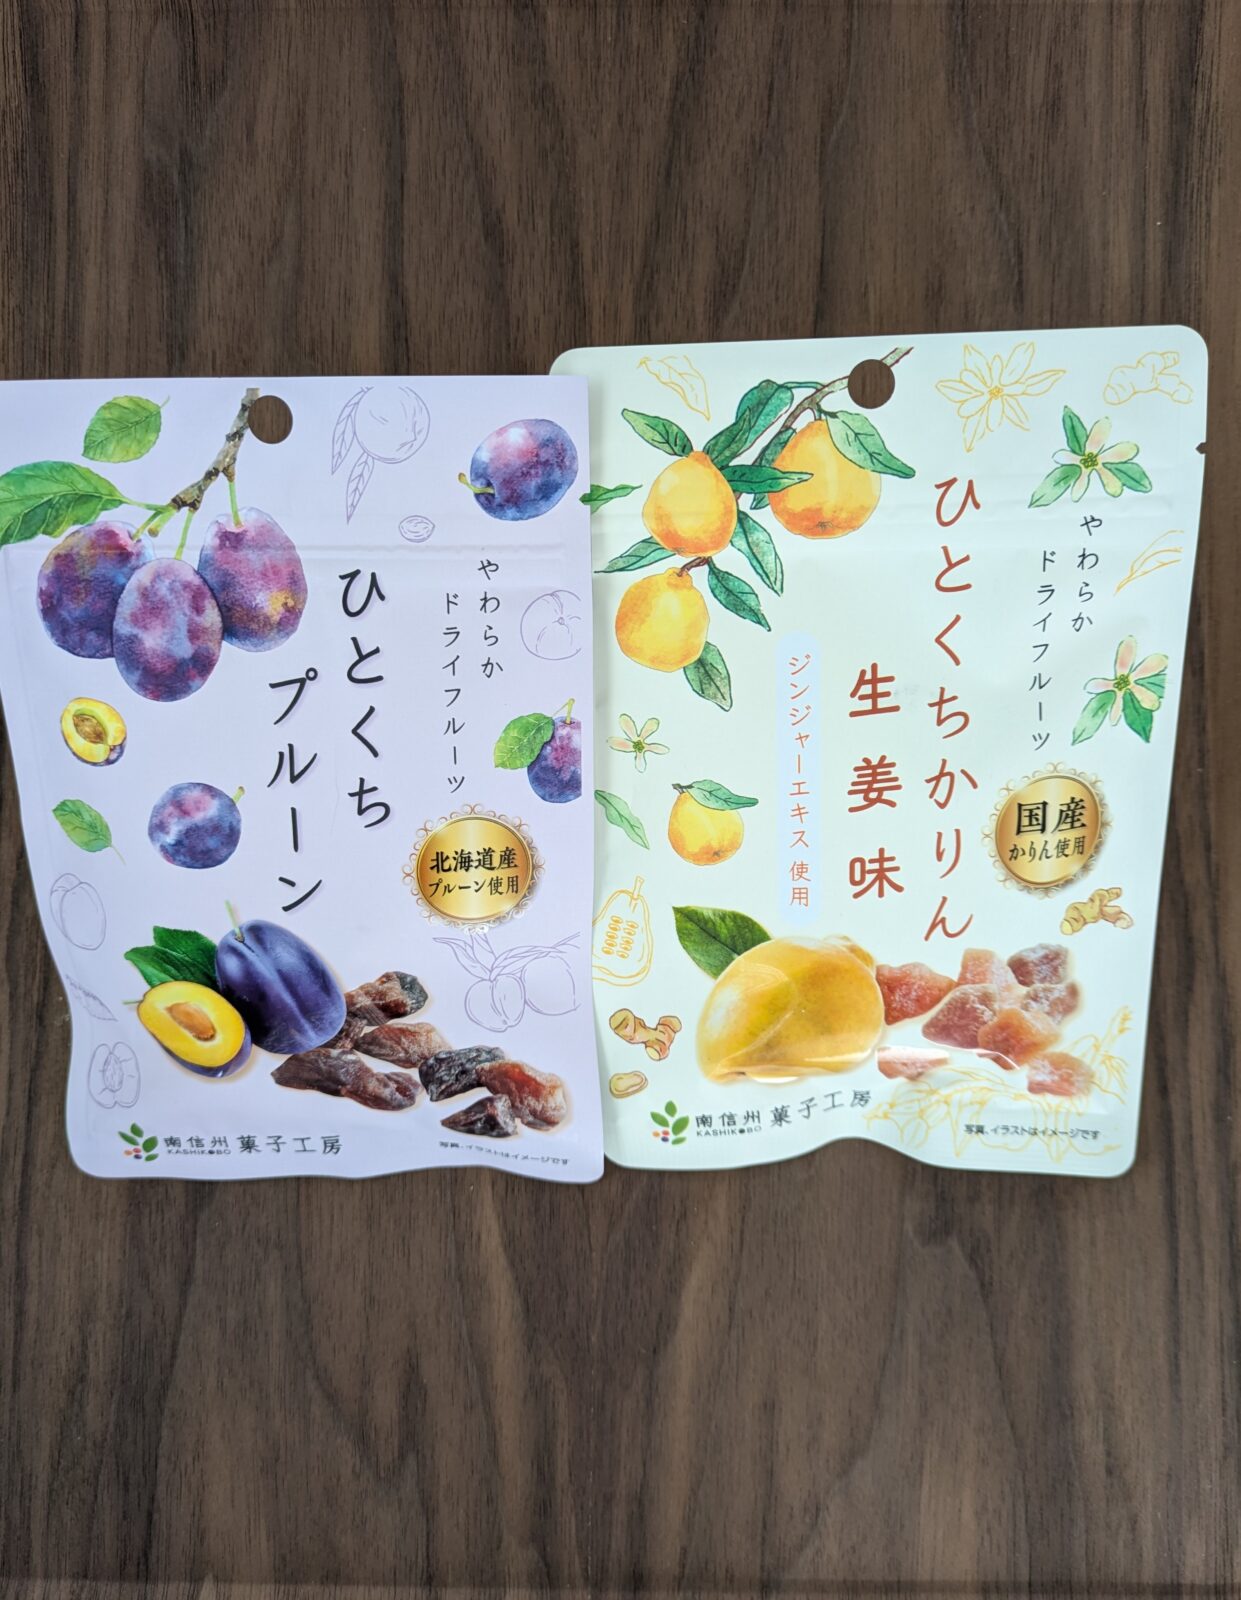 やわらか
ドライフルーツ
ひとくち
プルーン
北海道産
プルーン使用
南信州菓子工房
KASHIKOBO
写真、イラストはイメージです
やわらか
ドライフルーツ
ひとくちかりん
生姜味
ジンジャーエキス使用
国産
かりん使用
南信州菓子工房
KASHIKOBO
写真、イラストはイメージです